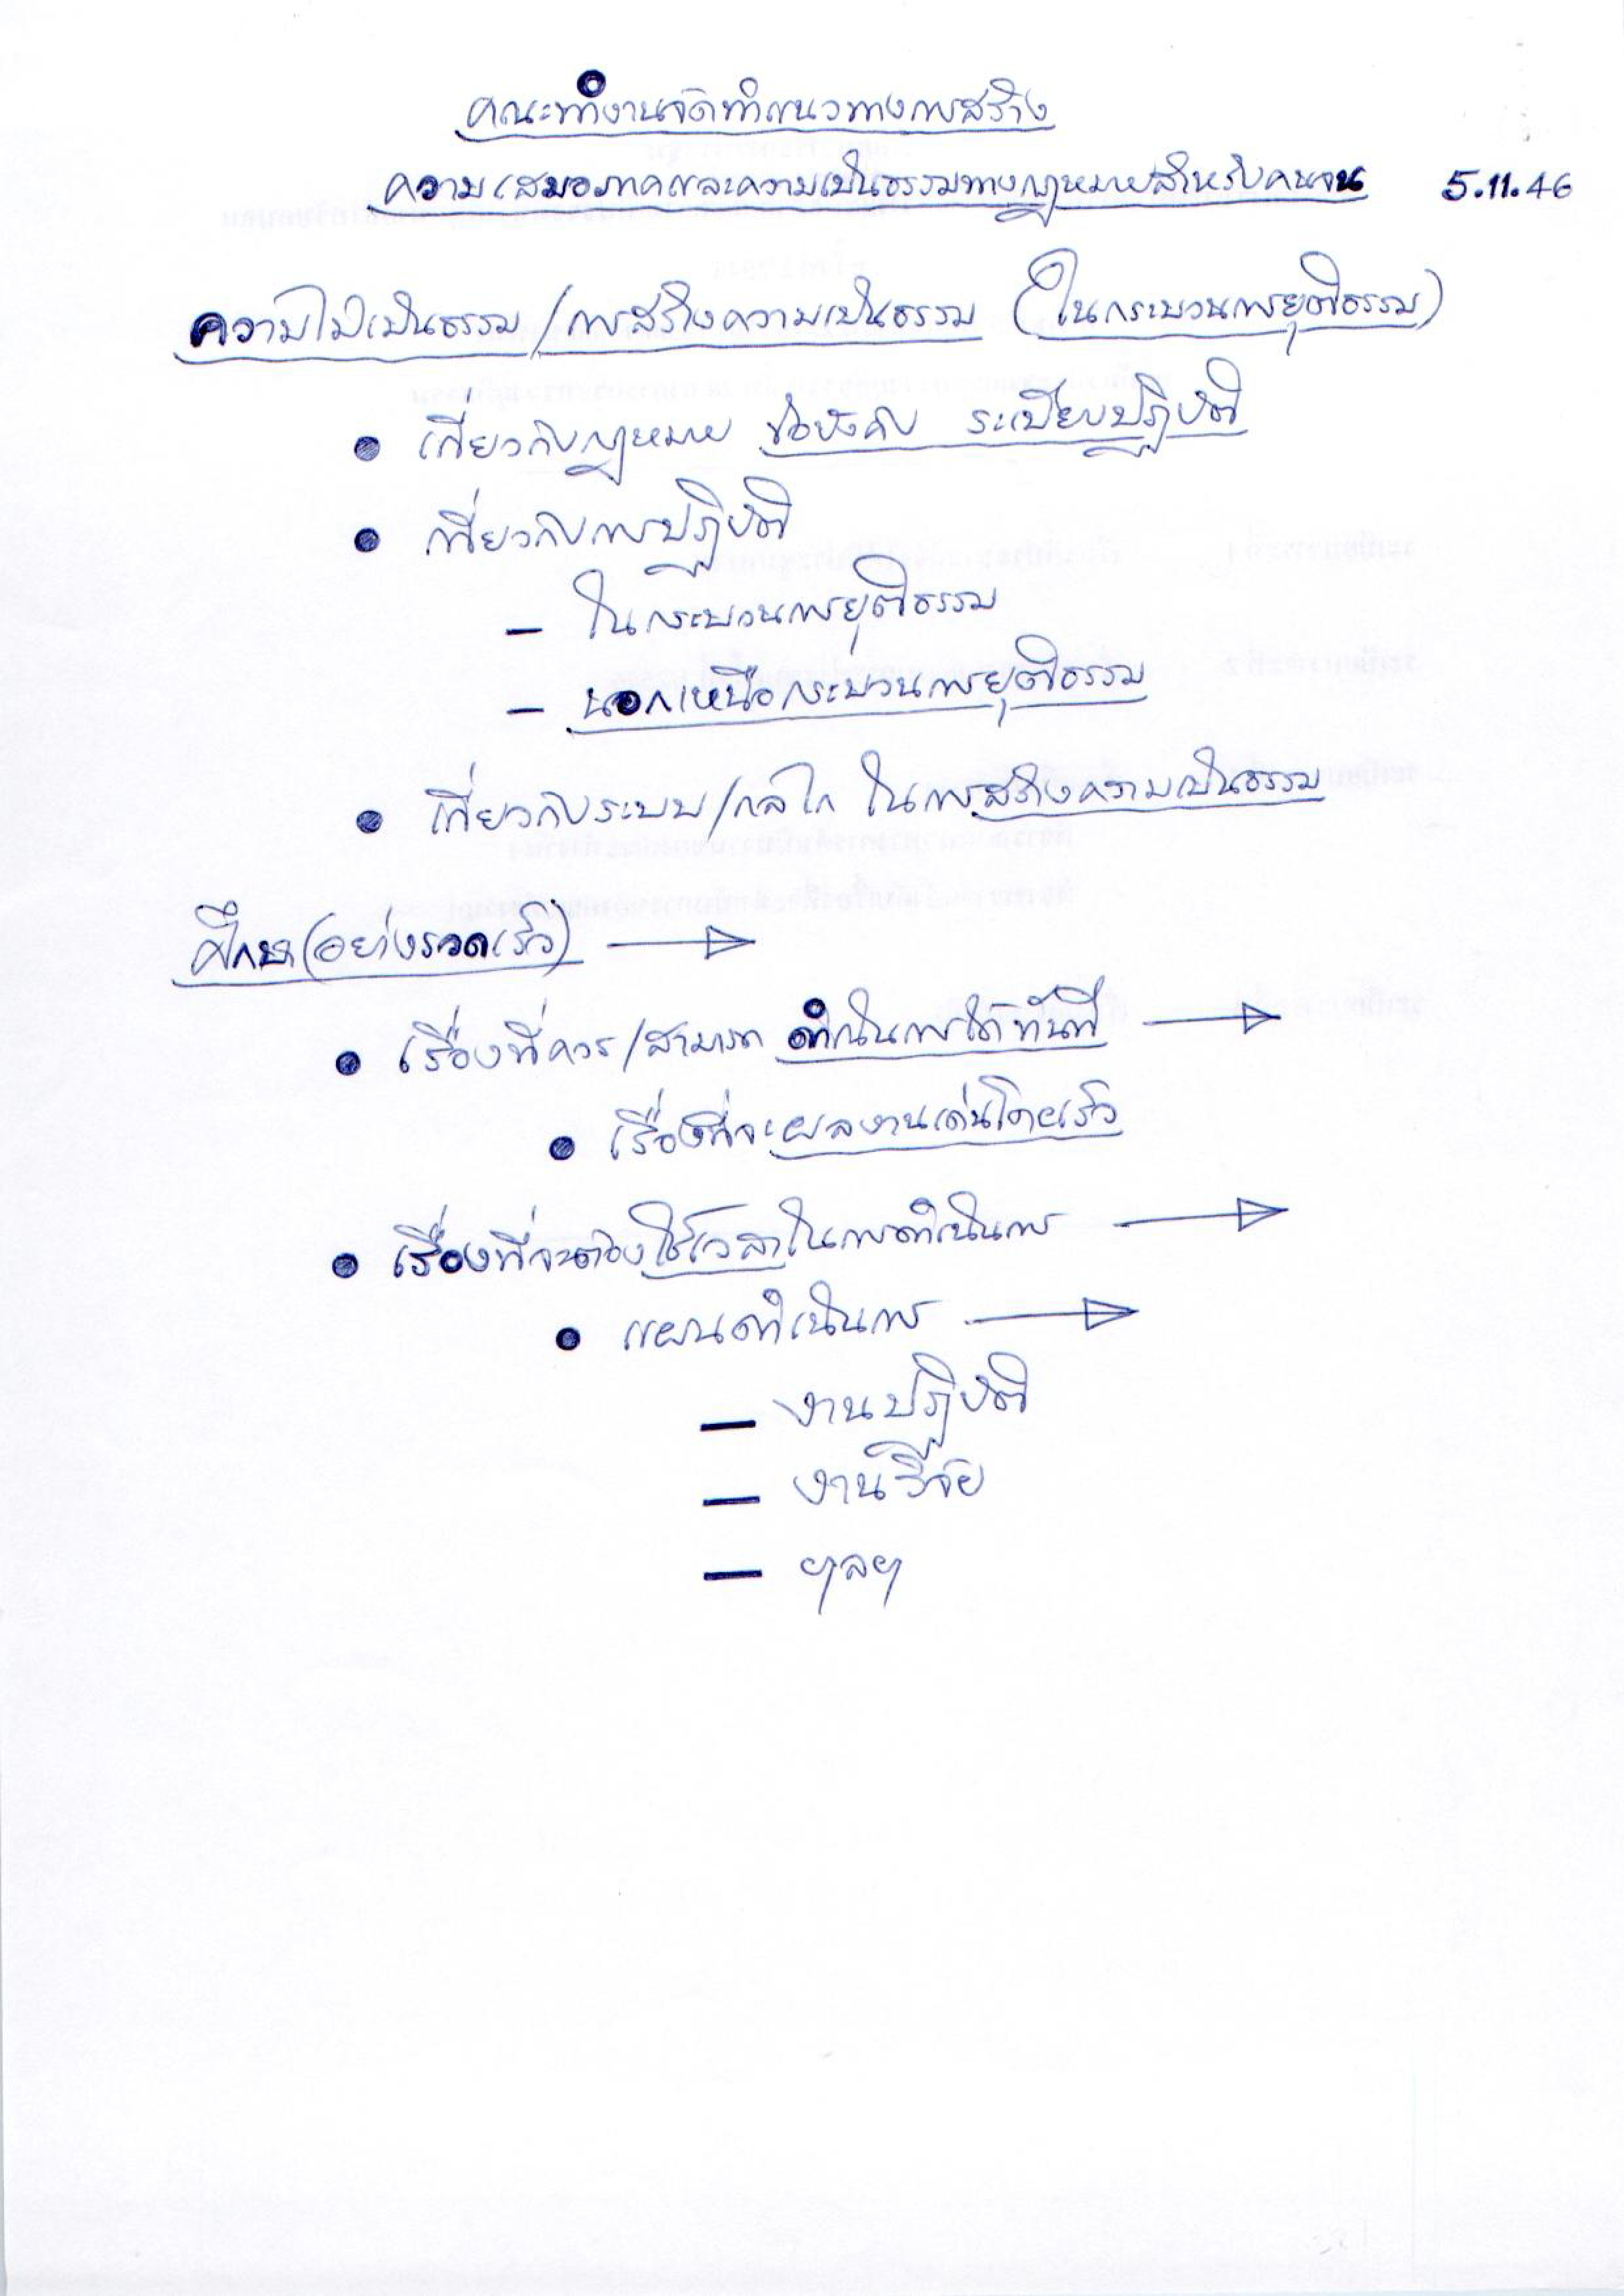 คณะทำงานจัดทำแนวทางการสร้าง
ความเสมอภาคและความเป็นธรรมทางกฎหมายสำหรับคนจน 5.11.46
ความไม่เป็นธรรม/การสร้างความเป็นธรรม (ในกระบวนการยุติธรรม)
• เกี่ยวกับกฎหมาย ข้อบังคับ ระเบียบปฏิบัติ
• เกี่ยวกับการปฏิบัติ
– ในกระบวนการยุติธรรม
– นอกเหนือกระบวนการยุติธรรม
• เกี่ยวกับระบบ/กลไก ในการสร้างความเป็นธรรม
ศึกษา (อย่างรวดเร็ว) →
• เรื่องที่ควร/สามารถ ดำเนินการได้ทันที →
• เรื่องที่จะผลงานเด่นโดยเร็ว
• เรื่องที่จะต้องใช้เวลาในการดำเนินการ →
• แผนดำเนินการ →
– งานปฏิบัติ
– งานวิจัย
– ฯลฯ